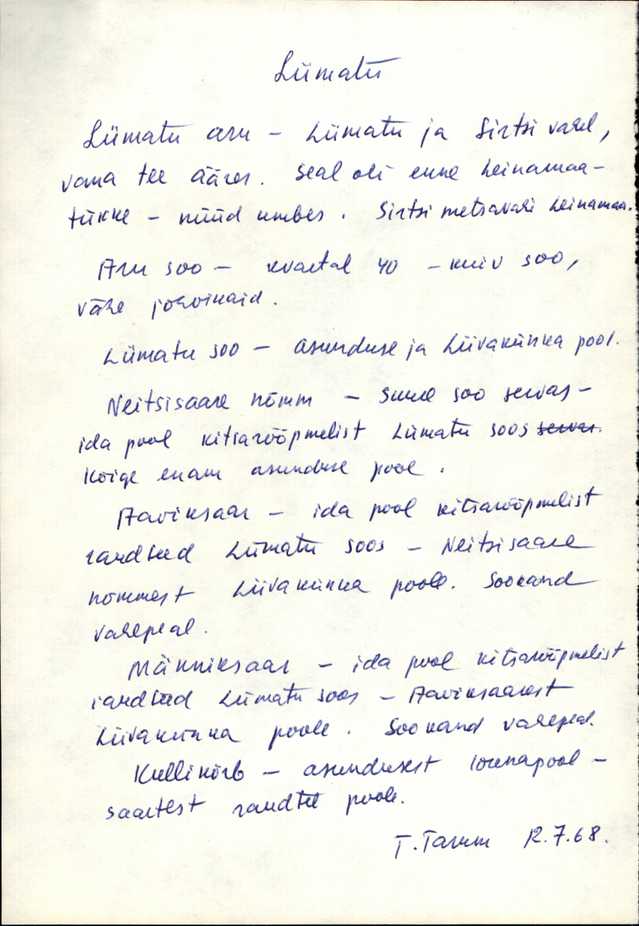 Liimatu
Liimatu aru – Liimatu ja Sirtsi vahel,
vana tee ääres. Seal oli enne heinamaa-
tükke – nüüd umbes. Sirtsi metsavahi heinamaa.
Aru soo – kvartal 40 – kuiv soo,
vähe johvikaid.
Liimatu soo – asunduse ja Liivakünka pool.
Neitsisaare nõmm – Suure soo servas –
ida pool kitsarööpmelist Liimatu soos servas.
Kõige enam asunduse pool.
Haviksaar – ida pool kitsarööpmelist
raudteed Liimatu soos – Neitsisaare
nõmmest Liivakünka poole. Sookand
vahepeal.
Männiksaar – ida pool kitsarööpmelist
raudteed Liimatu soos – Haviksaarest
Liivakünka poole. Sookand vahepeal.
Kullikõrb – asundusest lõunapool –
saartest raudtee poole.
T. Tamm 12.7.68.